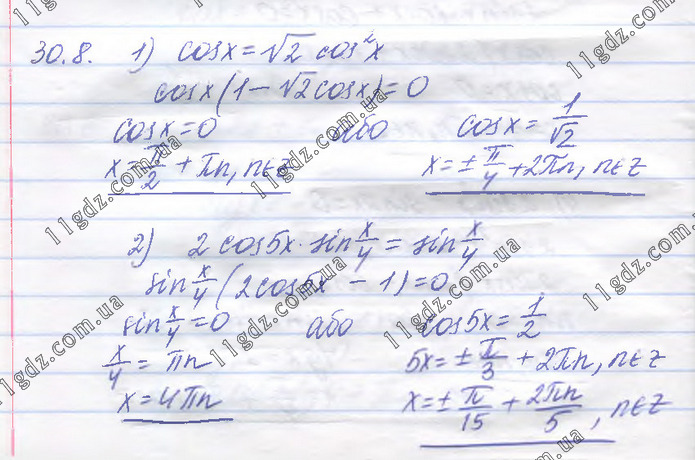 30.8. 1) cosx = √2 cos²x
cosx(1 − √2cosx) = 0
cosx = 0 або cosx = 1/√2
x = π/2 + πn, n∈z x = ± π/4 + 2πn, n∈z
2) 2 cos5x · sin x/4 = sin x/4
sin x/4 (2cos5x − 1) = 0
sin x/4 = 0 або cos5x = 1/2
x/4 = πn 5x = ± π/3 + 2πn, n∈z
x = 4πn x = ± π/15 + 2πn/5, n∈z
11gdz.com.ua
11gdz.com.ua
11gdz.com.ua
11gdz.com.ua
11gdz.com.ua
11gdz.com.ua